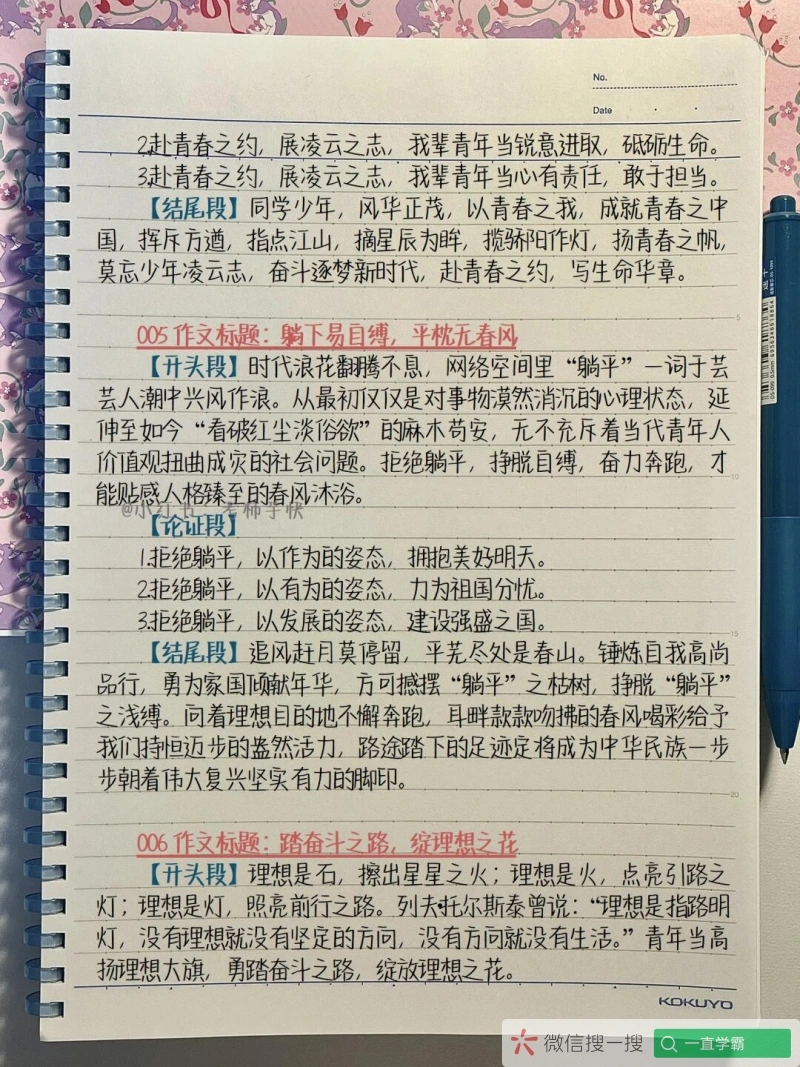 No.
Date
2.赴青春之约，展凌云之志，我辈青年当锐意进取，砥砺生命。
3.赴青春之约，展凌云之志，我辈青年当心有责任，敢于担当。
【结尾段】同学少年，风华正茂，以青春之我，成就青春之中
国，挥斥方遒，指点江山，摘星辰为眸，揽骄阳作灯，扬青春之帆，
莫忘少年凌云志，奋斗逐梦新时代，赴青春之约，写生命华章。
5
005 作文标题：躺下易自缚，平枕无春风
【开头段】时代浪花翻腾不息，网络空间里“躺平”一词于芸
芸人潮中兴风作浪。从最初仅仅是对事物漠然消沉的心理状态，延
伸至如今“看破红尘淡俗欲”的麻木苟安，无不充斥着当代青年人
价值观扭曲成灾的社会问题。拒绝躺平，挣脱自缚，奋力奔跑，才
10
能贴感人格臻至的春风沐浴。
【论证段】
1.拒绝躺平，以作为的姿态，拥抱美好明天。
2.拒绝躺平，以有为的姿态，力为祖国分忧。
3.拒绝躺平，以发展的姿态，建设强盛之国。
15
【结尾段】追风赶月莫停留，平芜尽处是春山。锤炼自我高尚
品行，勇为家国倾献年华，方可撼摆“躺平”之枯树，挣脱“躺平”
之浅缚。向着理想目的地不懈奔跑，耳畔款款吻拂的春风喝彩给予
我们持恒迈步的盎然活力，路途踏下的足迹定将成为中华民族一步
步朝着伟大复兴坚实有力的脚印。
20
006 作文标题：踏奋斗之路，绽理想之花
【开头段】理想是石，擦出星星之火；理想是火，点亮引路之
灯；理想是灯，照亮前行之路。列夫·托尔斯泰曾说：“理想是指路明
灯，没有理想就没有坚定的方向，没有方向就没有生活。”青年当高
扬理想大旗，勇踏奋斗之路，绽放理想之花。
KOKUYO
微信搜一搜
一直学霸